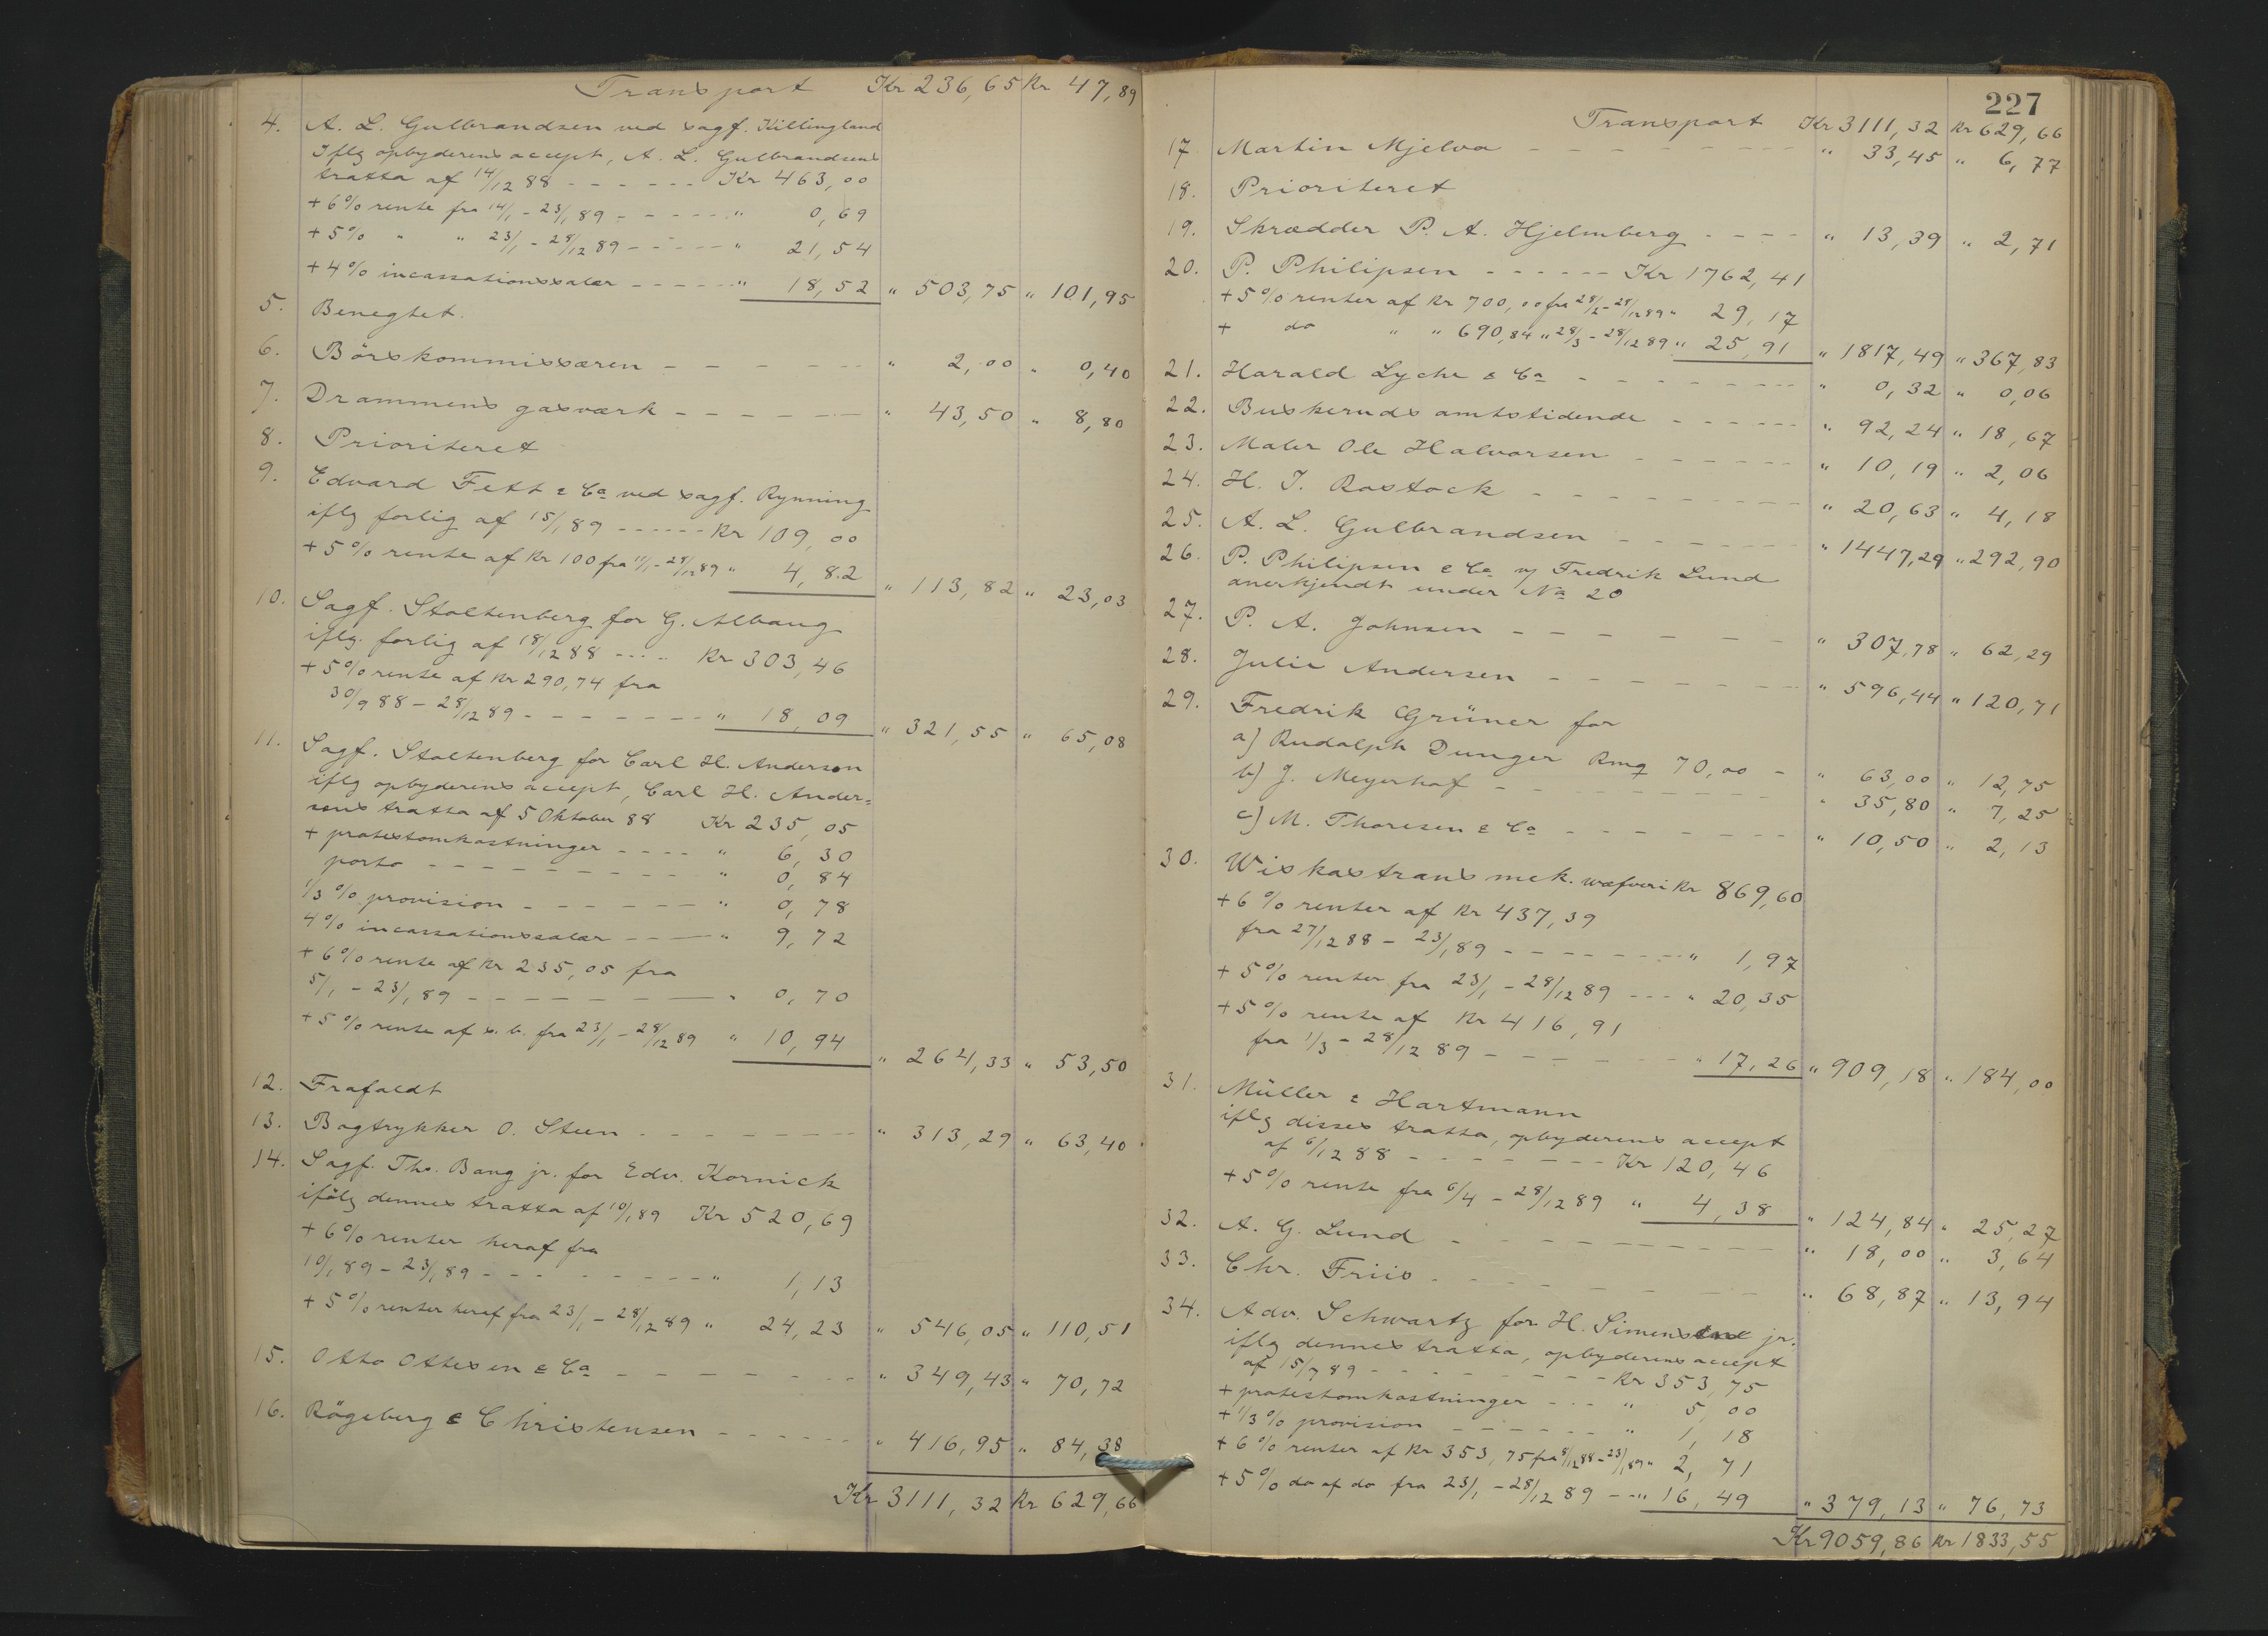 Transport Kr 236,65 Kr 47,89
4. A. L. Gulbrandsen ved sagf. Killingland
Iflg opbyderens accept, A. L. Gulbrandsens
tratta af 14/12 88 - - - - - - Kr 463,00
+ 6% rente fra 14/1 - 23/1 89 - - - - - " 0,69
+ 5% " " 23/1 - 28/12 89 - - - - - " 21,54
+ 4% incassationssalær - - - - - " 18,52 " 503,75 " 101,95
5. Benegtet.
6. Börskommissæren - - - - - - " 2,00 " 0,40
7. Drammens gasværk - - - - - - " 43,50 " 8,80
8. Prioriteret
9. Edvard Fett & Co ved sagf. Rynning
iflg forlig af 15/1 89 - - - - - - Kr 109,00
+ 5% rente af Kr 100 fra 11/1 - 28/12 89 " 4,82 " 113,82 " 23,03
10. Sagf. Stoltenberg for G. Albaug
iflg. forlig af 18/12 88 - - - - Kr 303,46
+ 5% rente af Kr 290,74 fra
30/9 88 - 28/12 89 - - - - - - - " 18,09 " 321,55 " 65,08
11. Sagf. Stoltenberg for Carl H. Anderson
iflg opbyderens accept, Carl H. Ander=
sons tratta af 5 Oktober 88 Kr 235,05
+ protestomkostninger - - - - " 6,30
porto - - - - - - - - - " 0,84
1/3 % provision - - - - - - - " 0,78
4% incassationssalær - - - - " 9,72
+ 6% rente af Kr 235,05 fra
5/1 - 23/1 89 - - - - - - - - " 0,70
+ 5% rente af s. b. fra 23/1 - 28/12 89 " 10,94 " 264,33 " 53,50
12. Frafaldt
13. Bogtrykker O. Steen - - - - - - - " 313,29 " 63,40
14. Sagf. Ths. Bang jr. for Edv. Kornick
ifölg dennes tratta af 10/1 89 Kr 520,69
+ 6% renter heraf fra
10/1 89 - 23/1 89 - - - - - - - - " 1,13
+ 5% renter heraf fra 23/1 - 28/12 89 " 24,23 " 546,05 " 110,51
15. Otto Ottesen & Co - - - - - - - " 349,43 " 70,72
16. Rögeberg & Christensen - - - - - - " 416,95 " 84,38
Kr 3111,32 Kr 629,66
227
Transport Kr 3111,32 Kr 629,66
17 Martin Mjelva - - - - - - - - - " 33,45 " 6,77
18. Prioriteret
19. Skrædder P. A. Hjelmberg - - - - " 13,39 " 2,71
20. P. Philipsen - - - - - - Kr 1762,41
+ 5% renter af Kr 700,00 fra 28/2 - 28/12 89 " 29,17
+ do " " 690,84 " 28/3 - 28/12 89 " 25,91 " 1817,49 " 367,83
21. Harald Lyche & Co - - - - - - - - " 0,32 " 0,06
22. Buskeruds amtstidende - - - - - - " 92,24 " 18,67
23. Maler Ole Halvorsen - - - - - - " 10,19 " 2,06
24. H. J. Rostock - - - - - - - - - " 20,63 " 4,18
25. A. L. Gulbrandsen - - - - - - - " 1447,29 " 292,90
26. P. Philipsen & Co v/ Fredrik Lund
anerkjendt under No 20
27. P. A. Johnsen - - - - - - - " 307,78 " 62,29
28. Julie Andersen - - - - - - - " 596,44 " 120,71
29. Fredrik Grüner for
a) Rudolph Dunger Rmq 70,00 - " 63,00 " 12,75
b) J. Meyerhof - - - - - - - - - " 35,80 " 7,25
c) M. Thoresen & Co - - - - - - - " 10,50 " 2,13
30. Wiskastrans mek. wæfveri Kr 869,60
+ 6% renter af Kr 437,39
fra 27/12 88 - 23/1 89 - - - - - - - " 1,97
+ 5% renter fra 23/1 - 28/12 89 - - - " 20,35
+ 5% rente af Kr 416,91
fra 1/3 - 28/12 89 - - - - - - - " 17,26 " 909,18 " 184,00
31. Müller & Hartmann
iflg disses tratta, opbyderens accept
af 6/12 88 - - - - - - - Kr 120,46
+ 5% rente fra 6/4 - 28/12 89 " 4,38 " 124,84 " 25,27
32. A. G. Lund - - - - - - - - - - " 18,00 " 3,64
33. Chr. Friis - - - - - - - - - " 68,87 " 13,94
34. Adv. Schwartz for H. Simonsen jr.
iflg dennes tratta, opbyderens accept
af 15/7 89 - - - - - - - - - Kr 353,75
+ protestomkostninger - - - " 5,00
+ 1/3 % provision - - - - - - " 1,18
+ 6% renter af Kr 353,75 fra 8/12 88 - 23/1 89 " 2,71
+ 5% do af do fra 23/1 - 28/12 89 - - " 16,49 " 379,13 " 76,73
Kr 9059,86 Kr 1833,55